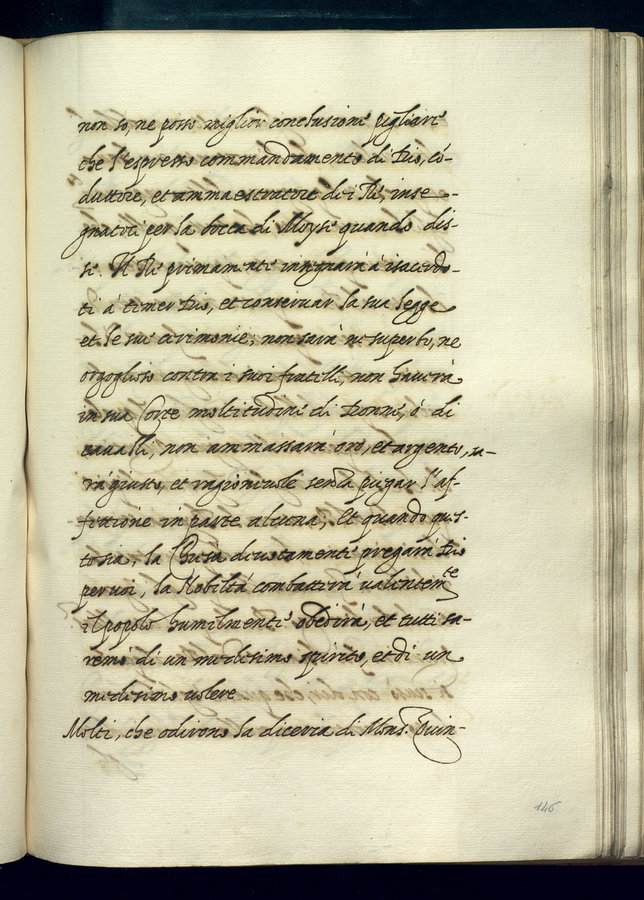 non so, ne posso miglior conclusione pigliare
che l'espresso commandamento di Dio, có-
duttore, et ammaestratore de i Rè, inse-
gnatoci per la bocca di Moyse quando dis-
se. Il Rè primamente insegnarà à i sacerdo-
ti à timer Dio, et conservar la sua legge
et le sue cerimonie; non sarà ne superbo, ne
orgoglioso contra i suoi fratelli, non haverà
in sua Corte moltitudine di Donne, ò di
cavalli, non ammassarà oro, et argento, sa-
rà giusto, et ragionevole senza piegar l'af-
fettione in parte alcuna; Et quando ques-
to sia, la Chiesa devotamente pregarà Dio
per voi, la Nobiltà combatterà valentemte
il popolo humilmente obedirà, et tutti sa-
remo di un medesimo spirito, et di un
medesimo volere
Molti, che odirono la diceria di Mons. Quin-
146